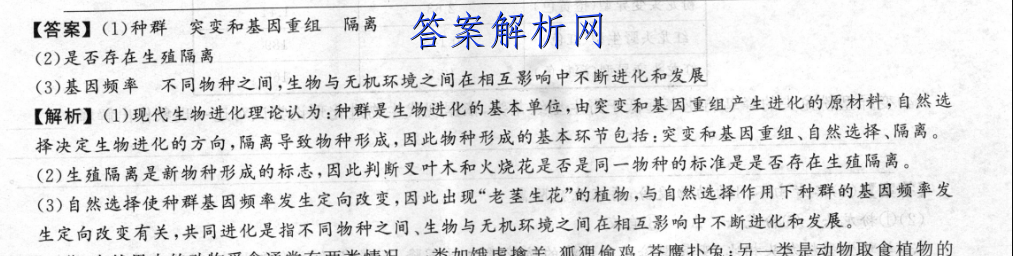 答案解析网
【答案】(1)种群 突变和基因重组 隔离
(2)是否存在生殖隔离
(3)基因频率 不同物种之间,生物与无机环境之间在相互影响中不断进化和发展
【解析】(1)现代生物进化理论认为:种群是生物进化的基本单位,由突变和基因重组产生进化的原材料,自然选
择决定生物进化的方向,隔离导致物种形成,因此物种形成的基本环节包括:突变和基因重组、自然选择、隔离。
(2)生殖隔离是新物种形成的标志,因此判断叉叶木和火烧花是否是同一物种的标准是是否存在生殖隔离。
(3)自然选择使种群基因频率发生定向改变,因此出现“老茎生花”的植物,与自然选择作用下种群的基因频率发
生定向改变有关,共同进化是指不同物种之间、生物与无机环境之间在相互影响中不断进化和发展。
类如饿虎擒羊、狐狸偷鸡、苍鹰扑兔;另一类是动物取食植物的